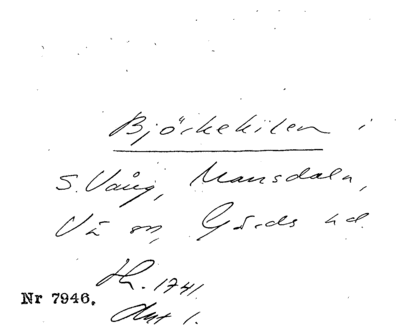 Björkekilen i
S. Vång, Mansdala,
Vä sn, Gärds hd.
Jh. 1741.
Akt 1.
Nr 7946.